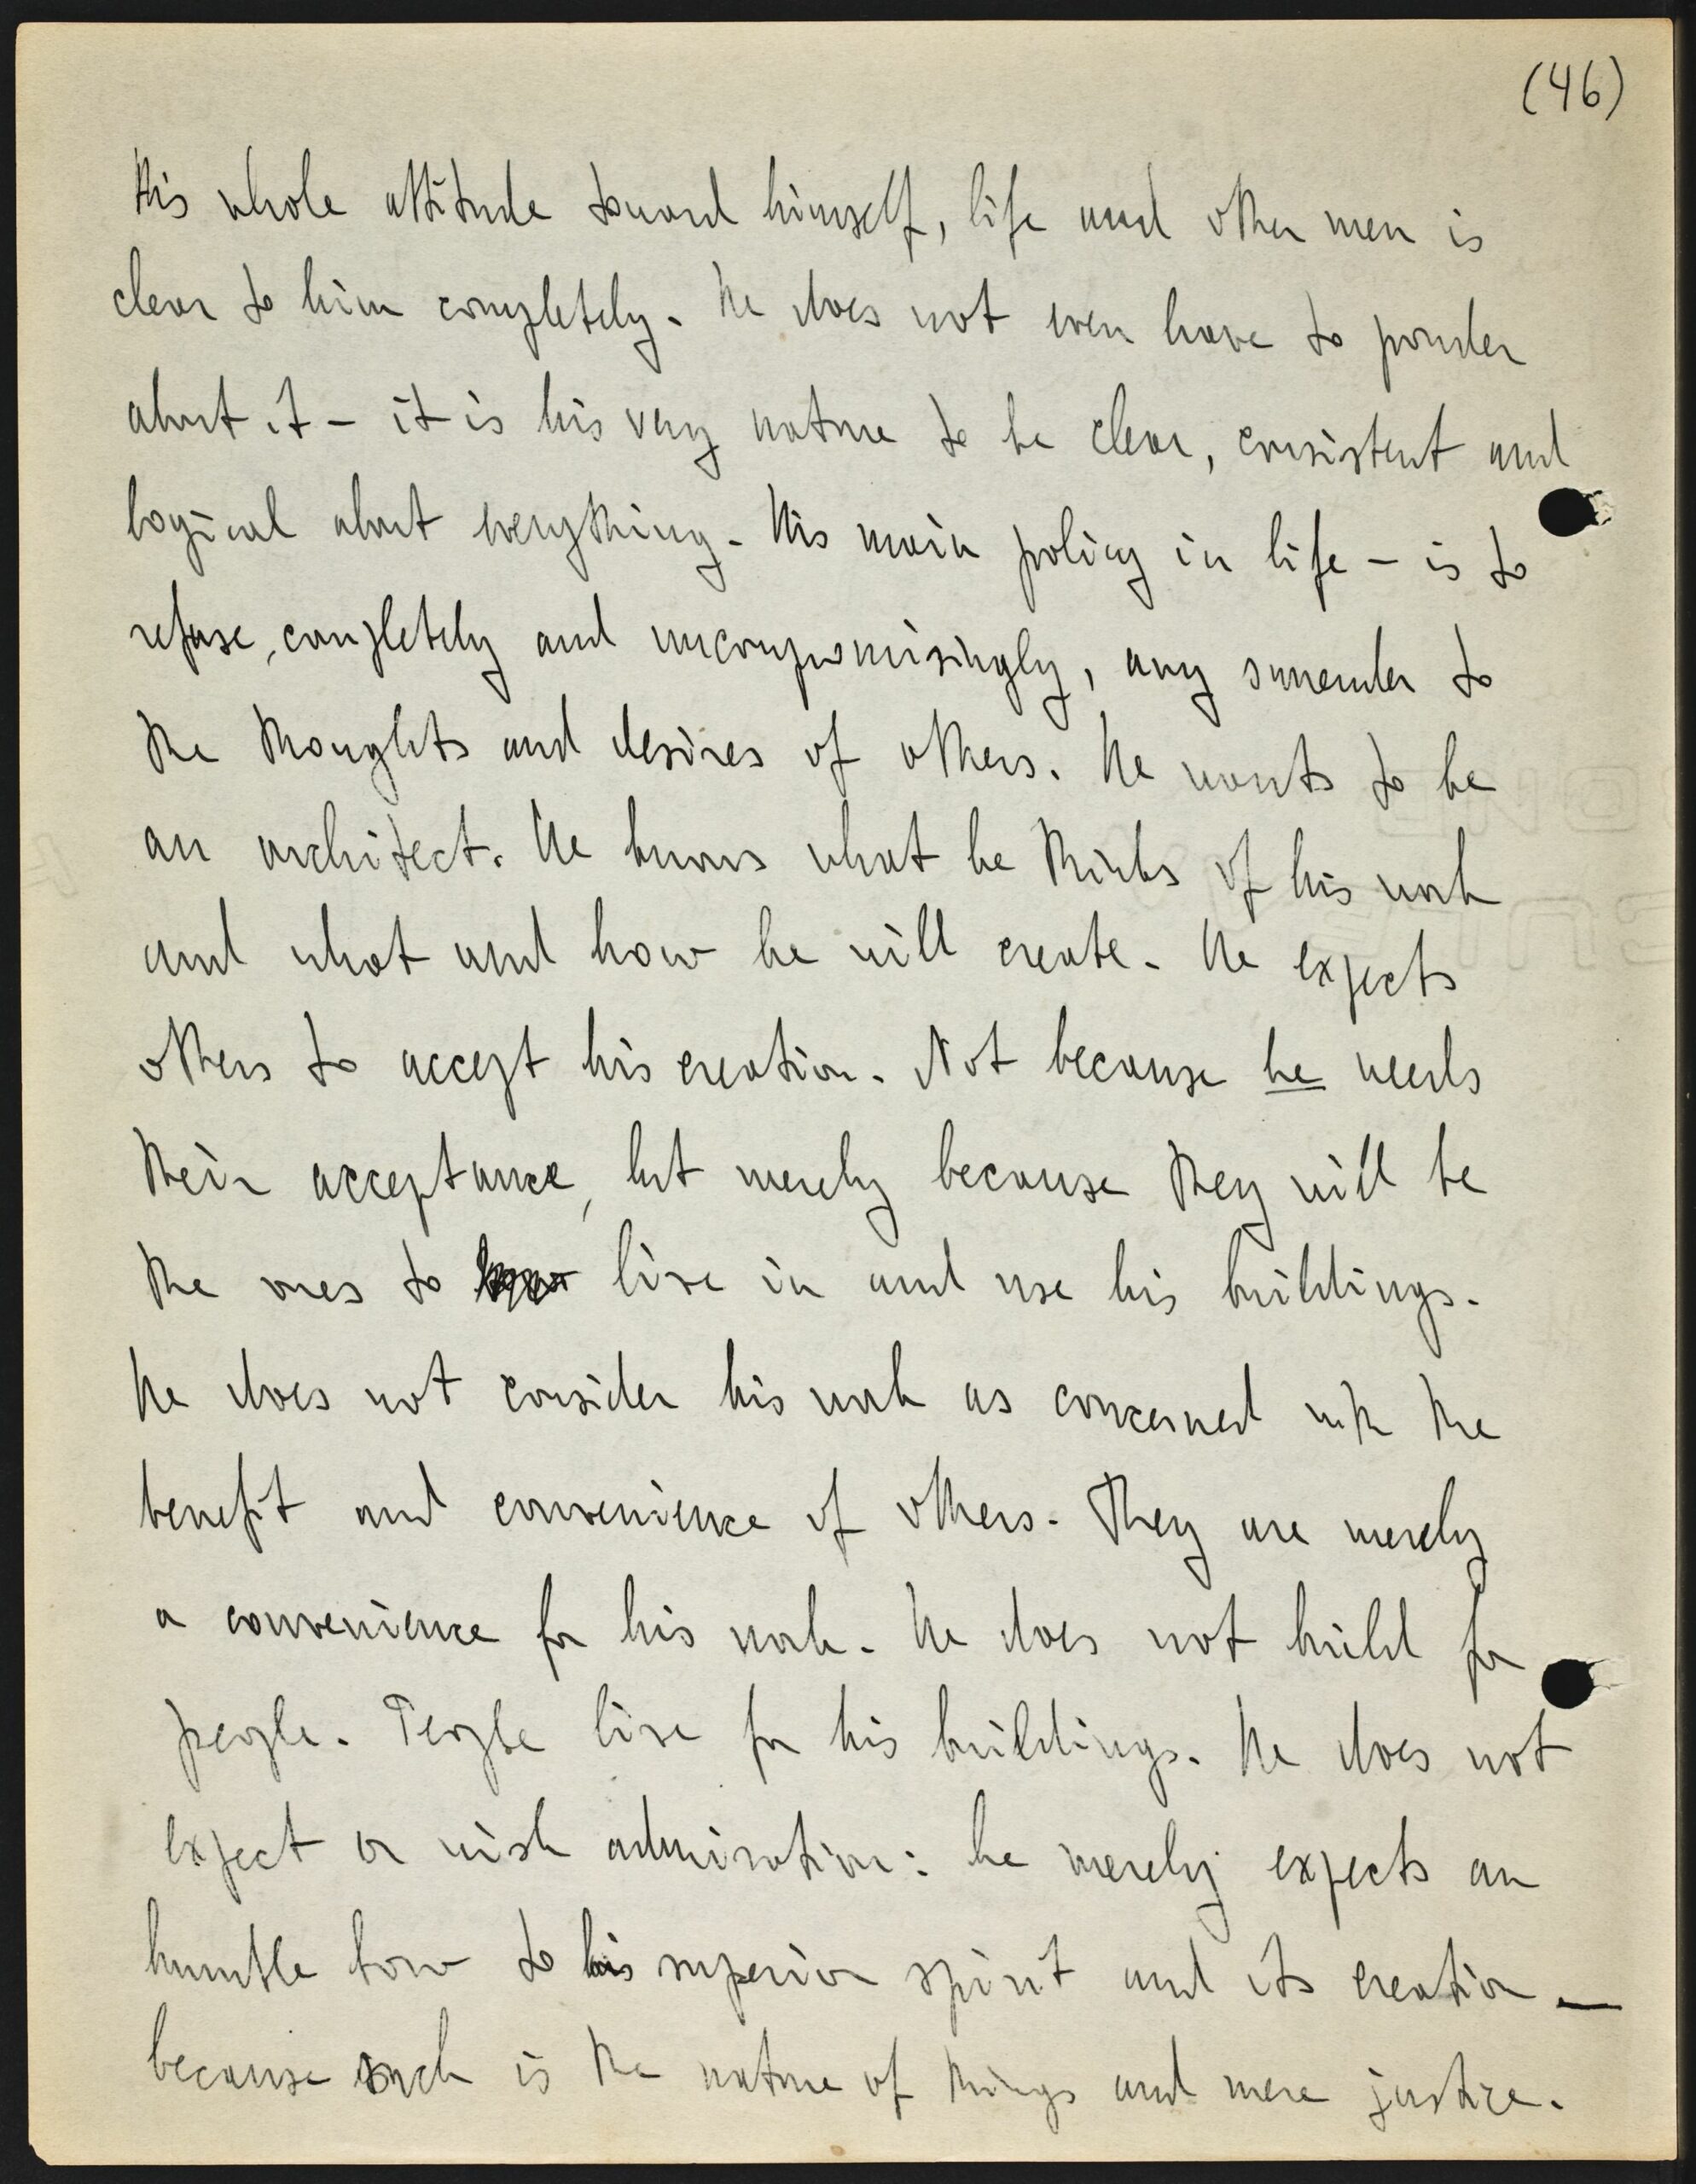 (46)
His whole attitude toward himself, life and other men is
clear to him completely. He does not even have to ponder
about it — it is his very nature to be clear, consistent and
logical about everything. His main policy in life — is to
refuse, completely and uncompromisingly, any surrender to
the thoughts and desires of others. He wants to be
an architect. He knows what he thinks of his work
and what and how he will create. He expects
others to accept his creation. Not because he needs
their acceptance, but merely because they will be
the ones to live in and use his buildings.
He does not consider his work as concerned with the
benefit and convenience of others. They are merely
a convenience for his work. He does not build for
people. People live for his buildings. He does not
expect or wish admiration: he merely expects an
humble bow to his superior spirit and its creation —
because such is the nature of things and mere justice.